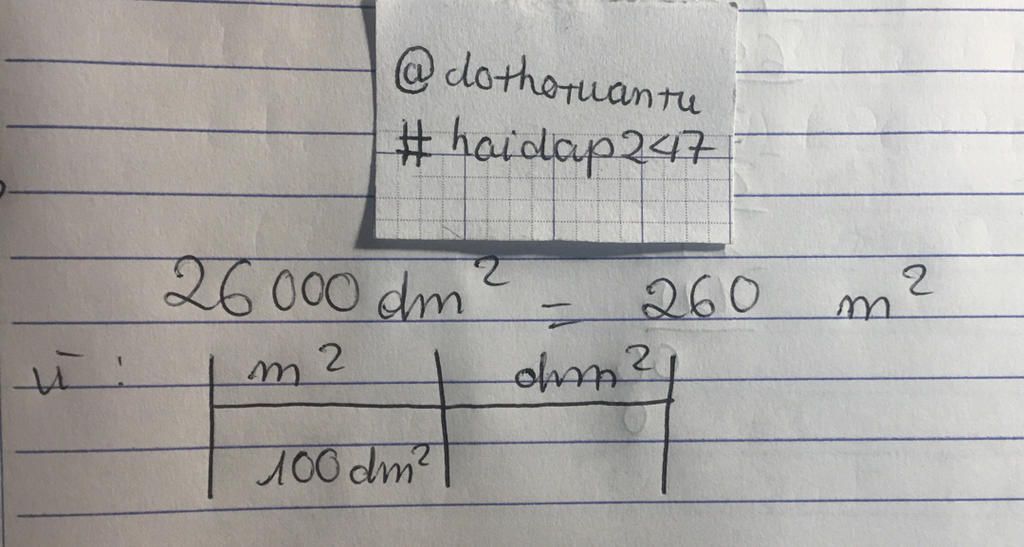 @dothotuantu
#haidap247
26000 dm² = 260 m²
m² dm²
100 dm²